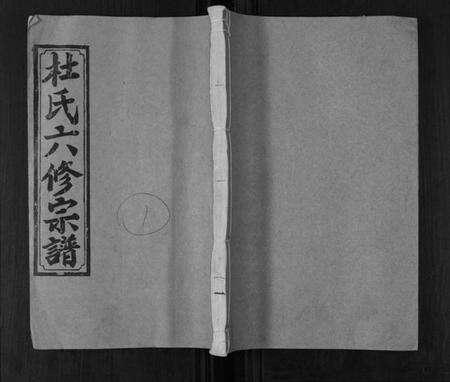 杜氏六修宗譜
1